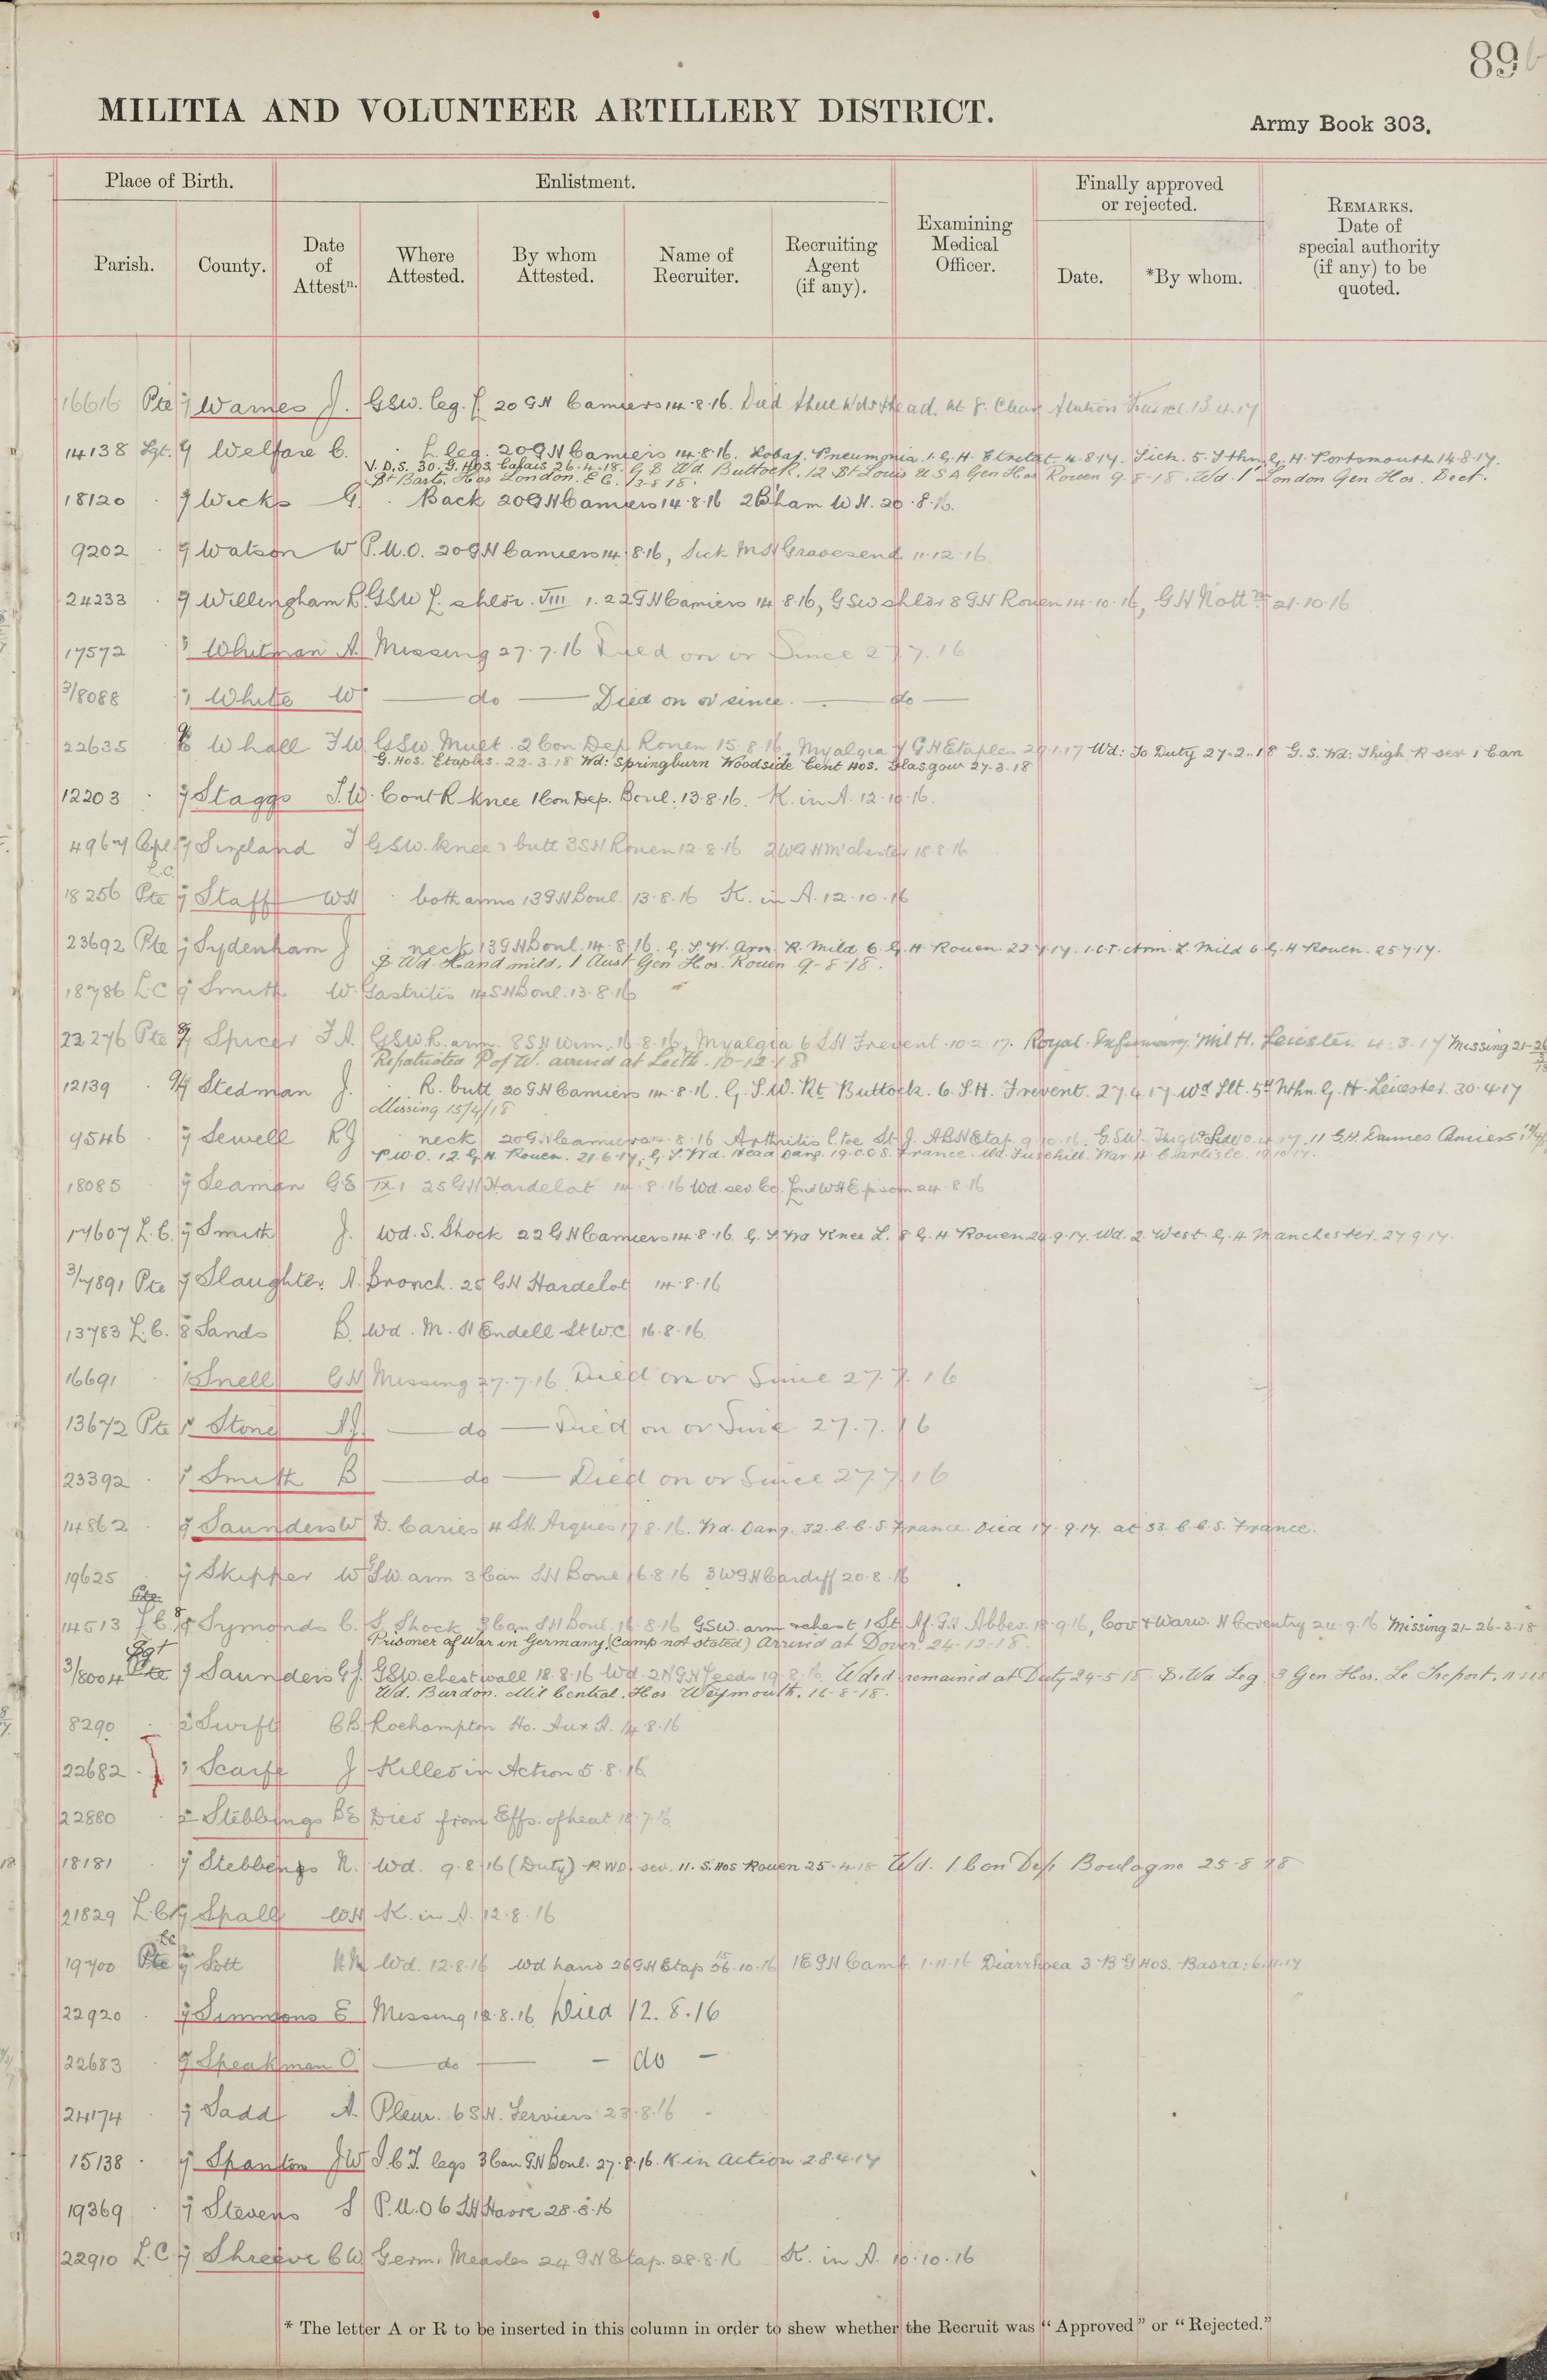 89
MILITIA AND VOLUNTEER ARTILLERY DISTRICT.
Army Book 303.
Place of Birth.
Enlistment.
Finally approved or rejected.
Parish.
County.
Date of Attestn.
Where Attested.
By whom Attested.
Name of Recruiter.
Recruiting Agent (if any).
Examining Medical Officer.
Date.
*By whom.
REMARKS. Date of special authority (if any) to be quoted.
16616 Pte 7 Warnes J. GSW. leg. 20 GH Camiers 14.8.16. Died Clear Station 13.4.17
14138 Sgt. 9 Welfare C. L. leg. 20 GH Camiers 14.8.16. Lobar. Pneumonia 1. G. H. Etretat 4.8.17. Sick. 5. Sthn G. H. Portsmouth 14.8.17.
V.D.S. 30. G. Hos. Calais 26.4.18. G S Wd. Buttock. 12 St Louis U S A Gen Hos Rouen 9-8-18. Wd 1st London Gen Hos. Dect.
St Barts. Hos London. E C. 13-8-18.
18120 9 Wicks G. Back 20 GH Camiers 14.8.16 2 B'ham W H. 20.8.16.
9202 9 Watson W P.U.O. 20 GH Camiers 14.8.16, Sick MH Gravesend 11.12.16
24233 9 Willingham R. GSW L. shldr. VIII 1. 22 GH Camiers 14.8.16, GSW shldr 8 GH Rouen 14.10.16, GH Nottm 21.10.16
17572 Whitman A. Missing 27.7.16 Died on or Since 27.7.16
3/8088 White W. do Died on or since do
22635 Whall F W. GSW. Mult. 2 Con Dep Rouen 15.8.16. Myalgia 7 GH Etaples 29.1.17 Wd: To Duty 27.2.18 G. S. Wd: Thigh R sev 1 Can
G. Hos. Etaples. 22.3.18 Wd: Springburn Woodside Cent Hos. Glasgow 27.3.18
12203 7 Staggs J.W. Cont R Knee 1 Con Dep. Boul. 13.8.16. K. in A. 12.10.16.
4967 Cpl 7 Sizeland J GSW. knee & butt 3 SH Rouen 12.8.16 2 WGH M'chester 18.8.16
L.C.
18256 Pte 7 Staff WH both arms 13 GH Boul. 13.8.16 K. in A. 12.10.16
23692 Pte 7 Sydenham J neck 13 GH Boul. 14.8.16. G. S. W. Arm. R. Mild 6 G. H. Rouen. 22.7.17. I.C.T. Arm L Mild 6 G. H Rouen. 25.7.17.
G. Wd. Hand mild. 1 Aust Gen Hos. Rouen 9-8-18.
18786 L C 9 Smith W. Gastritis 14 SH Boul. 13.8.16
22276 Pte 9 Spicer F A. GSW R. arm. 8 SH Wim. 16.8.16. Myalgia 6 SH Frevent. 10.2.17. Royal. Infirmary. Mil H. Leicester 4.3.17 Missing 21-26
Repatriated P of W. arrived at Leith. 10-12-18
12139 9 Stedman J. R. butt 20 GH Camiers 14.8.16. G. S.W. Rt Buttock. 6. S.H. Frevent. 27.4.17 Wd Slt. 5th Nthn G. H. Leicester. 30.4.17
Missing 15/4/18
9546 7 Sewell R J neck 20 GH Camiers 14.8.16 Arthritis L. toe St J. AB H Etap. 9.10.16. GSW. Thigh 11 GH. Dannes Camiers
P.U.O. 12. G. H. Rouen. 21.6.17, G. S. Wd. Head Dang. 19.C.C.S. France. Wd. Fusehill. War H Carlisle. 19.10.17.
18085 7 Seaman G E IX 1 25 GH Hardelot 14.8.16 Wd. sev. Co. Lond WH Epsom 24.8.16
17607 L.C. 7 Smith J. Wd. S. Shock 22 GH Camiers 14.8.16. G. S. Wd Knee L. 8 G. H Rouen 24.9.17. Wd. 2. West. G. H. Manchester. 27.9.17.
3/7891 Pte 7 Slaughter A. Bronch. 25 GH Hardelot 14.8.16
13783 L.C. 8 Sands B. Wd. M. H Endell St W.C. 16.8.16.
16691 Snell G H Missing 27.7.16. Died on or Since 27.7.16
13672 Pte Stone A J. do Died on or Since 27.7.16
23392 Smith B do Died on or Since 27.7.16
14862 9 Saunders W D. Caries 4 SH. Arques 17.8.16. Wd. Dang. 32. C.C.S. France. Died 17.9.17. at 32 C.C.S. France.
19625 7 Skipper W GSW. arm 3 Can SH Boul 16.8.16 3 WGH Cardiff 20.8.16
Cpl
14513 L C 8 Symonds C. S. Shock 3 Can SH Boul. 16.8.16 GSW. arm & chest 1 St. Af. GH Abbev. 18.9.16, Cov & Warw. H Coventry 24.9.16. Missing 21-26-3-18
Prisoner of War in Germany. (Camp not stated) Arrived at Dover. 24-12-18.
Sgt
3/8004 Pte 7 Saunders G J. GSW. chest wall 18.8.16 Wd. 2 NGH Leeds 19.8.16 Wded remained at Duty 24-5-18 S. Wd Leg 3 Gen Hos. Le Treport. 11.8.18
Wd. Burdon. Mil Central. Hos Weymouth. 16-8-18.
8290 2 Swift C B. Roehampton Ho. Aux H. 14.8.16
22682 Scarfe J Killed in Action 5.8.16
22880 2 Stebbings B E Died from Effs. of heat 18.7.16
18181 7 Stebbings R. Wd. 9.8.16 (Duty) R WD. sev. 11. S. Hos Rouen 25.4.18 Wd. 1 Con Dep Boulogne 25-8-18
21829 L.C. 9 Spall W H K. in A. 12.8.16
19700 Pte 7 Sott Wd. 12.8.16 Wd hand 26 GH Etap 10.16 1 E GH Camb. 1.11.16 Diarrhoea 3 B G Hos. Basra: 6.11.17
22920 7 Simmons E Missing 12.8.16 Died 12.8.16
22683 9 Speakman O. do - do -
24174 7 Sadd A. Pleur. 6 SH. Serviers 23.8.16
15138 7 Spanton J W I.C.T. legs 3 Can GH Boul. 27.8.16. K. in action 28.4.17
19369 7 Stevens S P.U.O 6 SH Havre 28.8.16
22910 L.C 7 Shreeve C W Germ. Measles 24 GH Etap. 28.8.16 K. in A. 10.10.16
* The letter A or R to be inserted in this column in order to shew whether the Recruit was "Approved" or "Rejected."